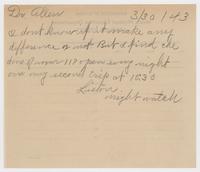 Dr Allen 3/30/43
I dont know if it make any
difference or not But I find the
door of room 117 open every night
on my second trip at 10:30
Lister
night watch